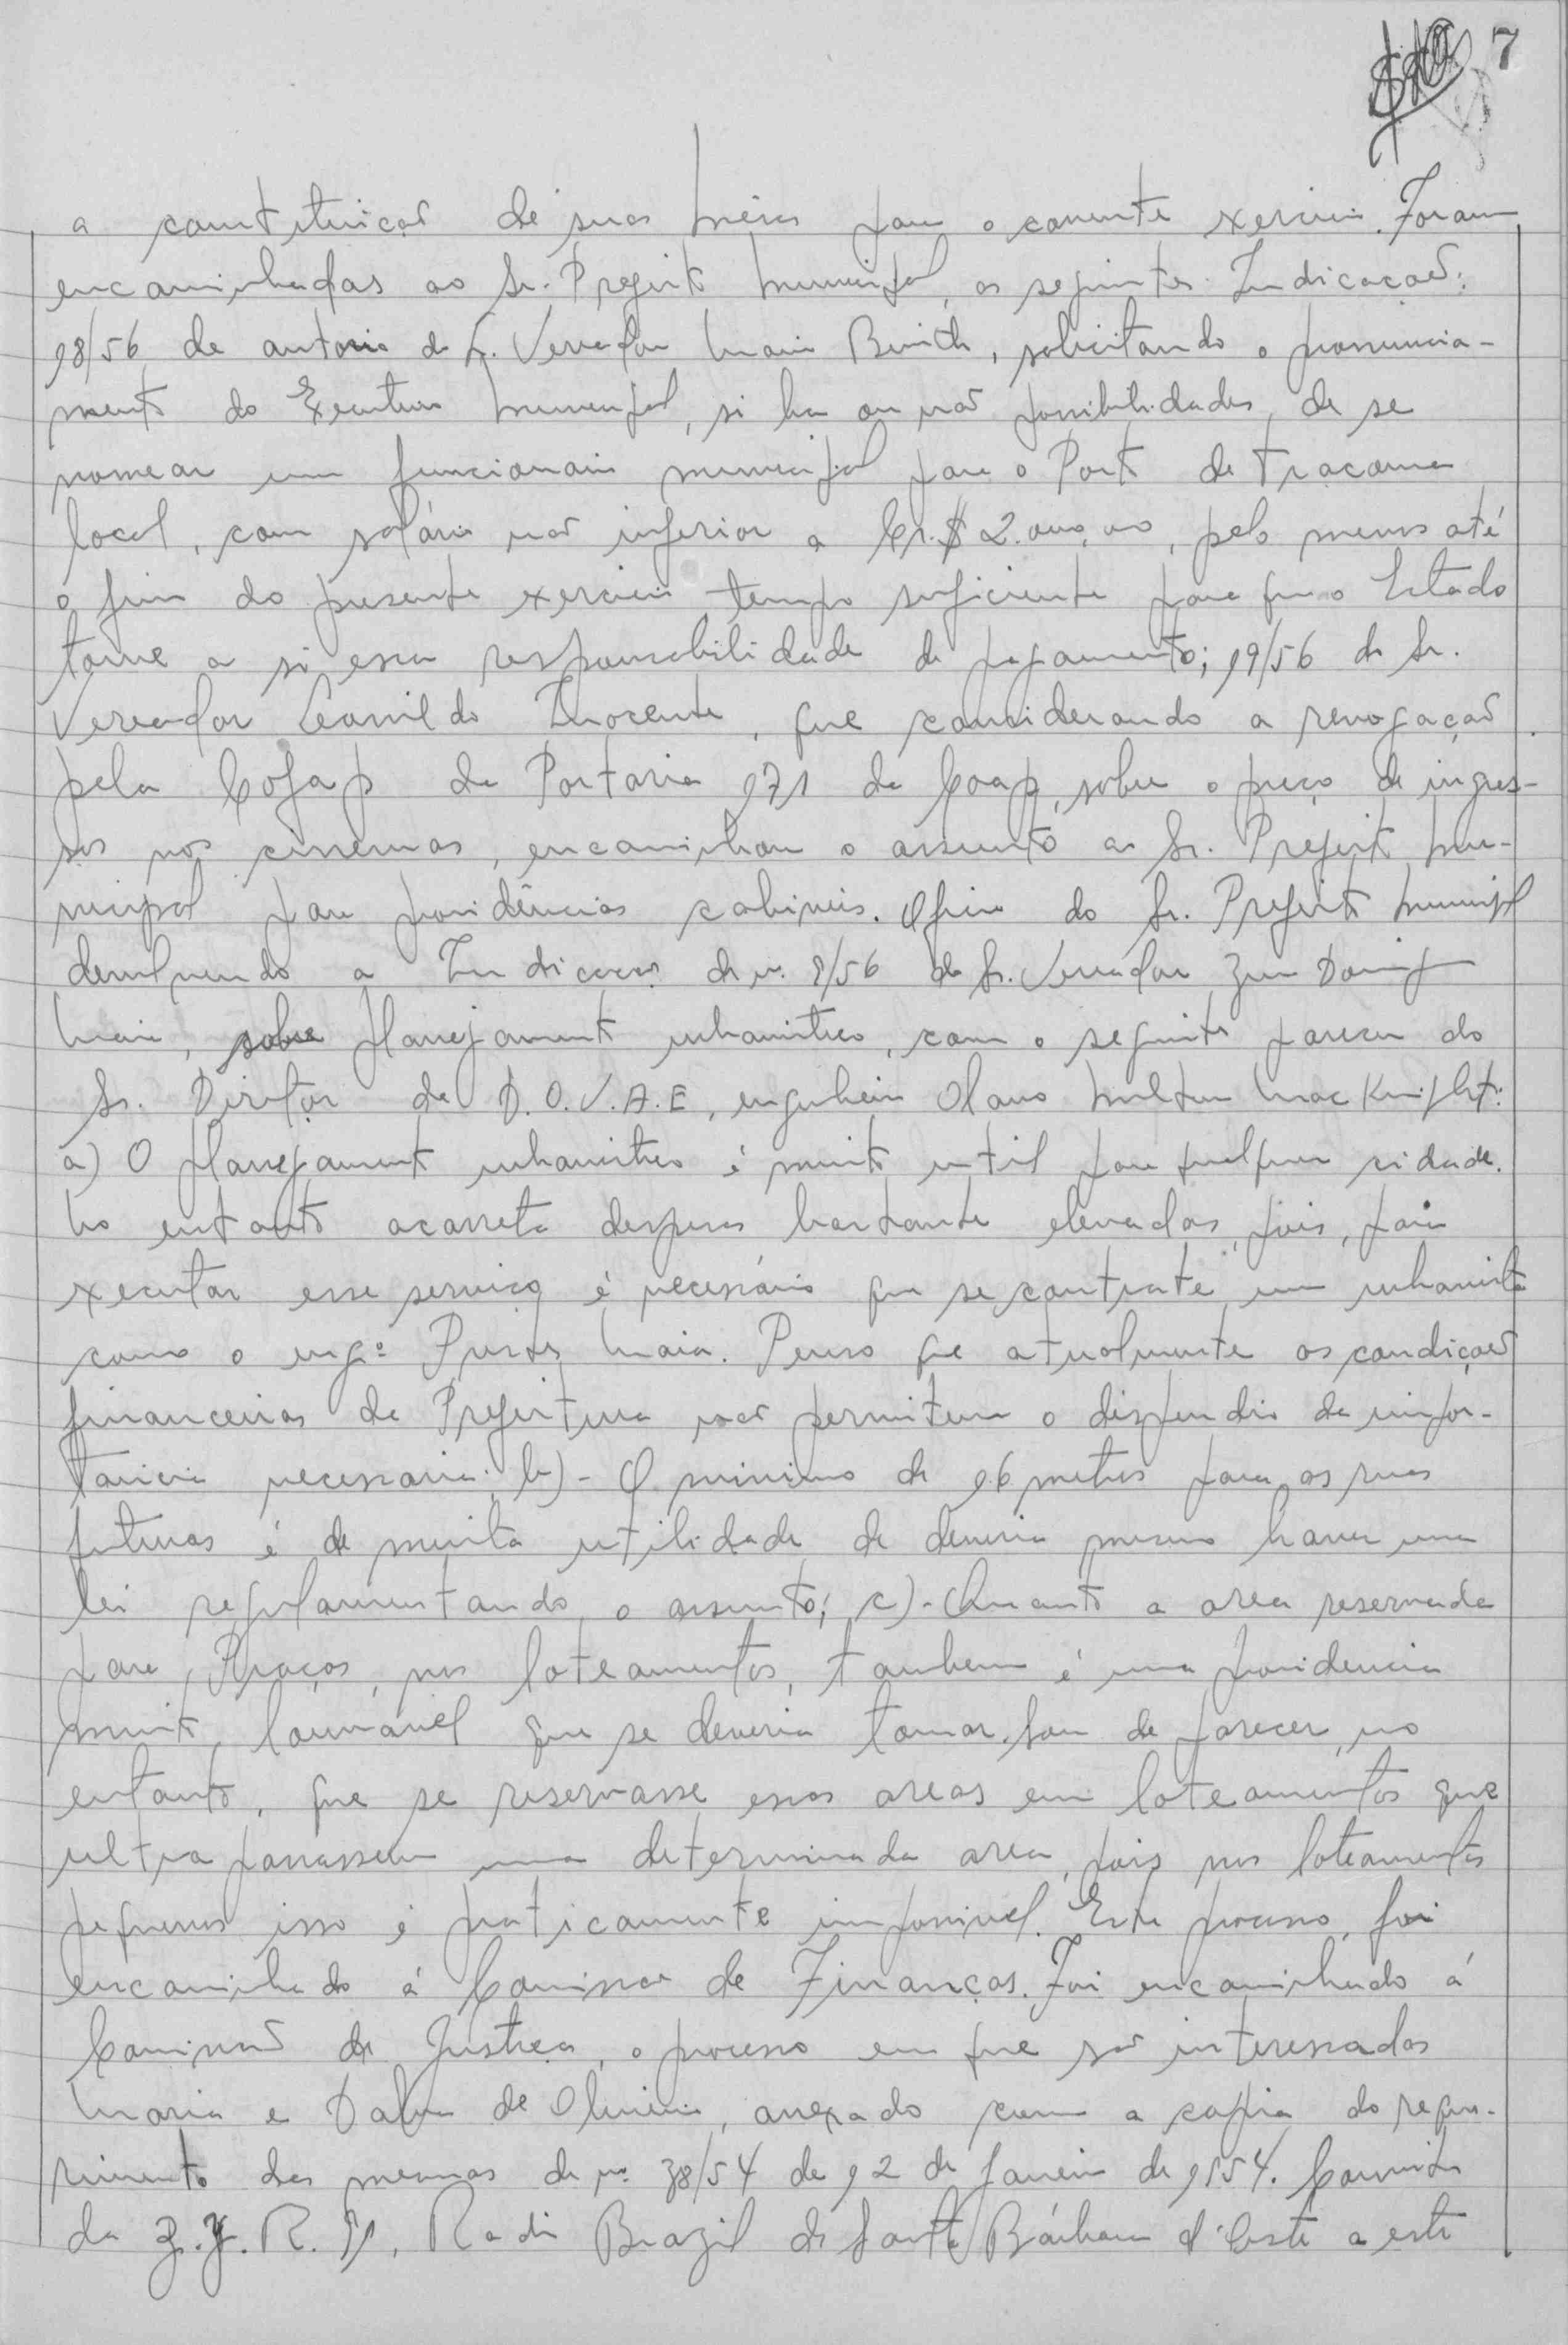 7
a constituição de suas mesas para o corrente exercicio. Foram
encaminhadas ao Sr. Prefeito Municipal, as seguintes Indicações:
18/56 de autoria do Sr. Vereador Mario, solicitando o pronuncia-
mento do Executivo Municipal, si ha ou não possibilidades, de se
nomear um funcionario municipal para o Posto de Tracoma
local, com salário não inferior a Cr.$ 2.000,00, pelo menos até
o fim do presente exercicio tempo suficiente para que o Estado
tome a si essa responsabilidade de pagamento; 19/56 do Sr.
Vereador Leonildo Inocente, que considerando a revogação
pela Cofap da Portaria 171 da Coap, sobre o preço de ingres-
sos nos cinemas, encaminhou o assunto ao Sr. Prefeito Mu-
nicipal para providências cabiveis. Oficio do Sr. Prefeito Municipal
devolvendo a Indicação de n. 9/56 do Sr. Vereador
sobre planejamento urbanistico, com o seguinte parecer do
Sr. Diretor da D.O.V.A.E, engenheiro Olavo Milton Mac Knight:
a) O planejamento urbanistico é muito util para qualquer cidade.
No entanto acarreta despesas bastante elevadas, pois, para
executar esse serviço é necessário que se contrate um urbanista
como o engº Prestes Maia. Penso que atualmente as condições
financeiras da Prefeitura não permitem o dispendio da impor-
tancia necessaria; b)- O minimo de 16 metros para as ruas
futuras é de muita utilidade de deveria mesmo haver uma
lei regulamentando o assunto; c)- Quanto a area reservada
para Praças, nos loteamentos, tambem é uma providencia
muito louvável que se deveria tomar. Sou de parecer, no
entanto, que se reservasse essas areas em loteamentos que
ultrapassassem uma determinada area, pois nos loteamentos
pequenos isso é praticamente impossivel. Este processo, foi
encaminhado á Comissão de Finanças. Foi encaminhado á
Comissão de Justiça, o processo em que são interessadas
Maria e Dalva de Oliveira, anexado com a copia do reque-
rimento das mesmas de nº 38/54 de 12 de Janeiro de 1954. Convite
da Z.Y.R. 91, Radio Brazil de Santa Bárbara d'Oeste a este